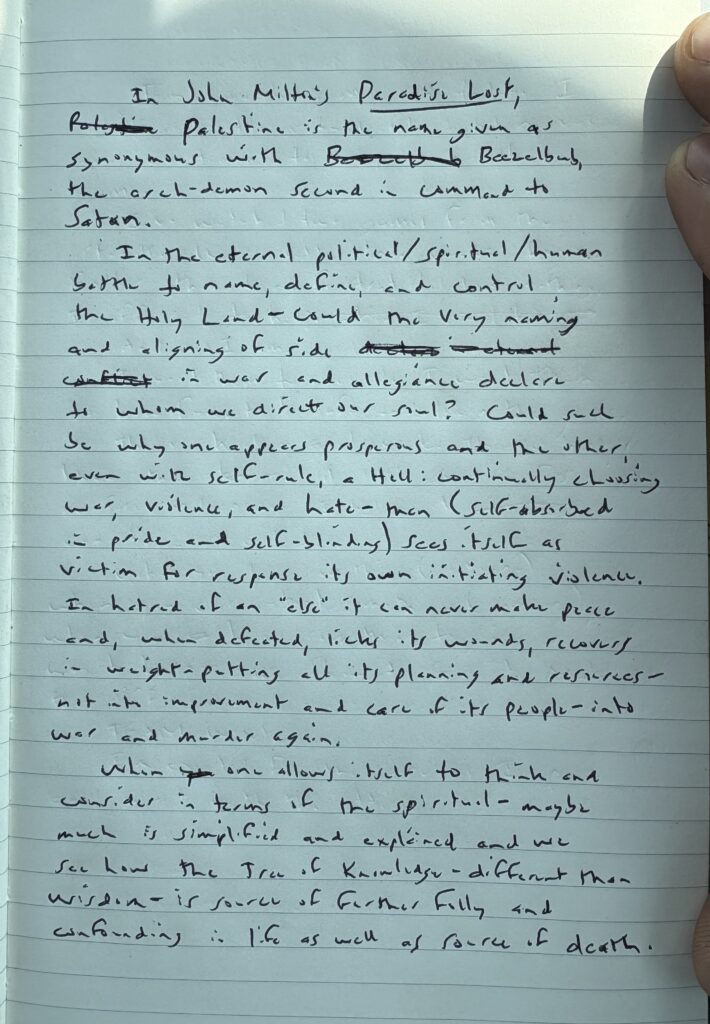 In John Milton's Paradise Lost,
Palestine is the name given as
synonymous with Beezelbub,
the arch-demon second in command to
Satan.
In the eternal political/spiritual/human
battle to name, define, and control
the Holy Land - could the very naming
and aligning of side
in war and allegiance declare
to whom we direct our soul? Could such
be why one appears prosperous and the other,
even with self-rule, a Hell: continually choosing
war, violence, and hate - then (self-absorbed
in pride and self-blinding) sees itself as
victim for response its own initiating violence.
In hatred of an "else" it can never make peace
and, when defeated, licks its wounds, recovers
in weight - putting all its planning and resources -
not into improvement and care of its people - into
war and murder again.
When one allows itself to think and
consider in terms of the spiritual - maybe
much is simplified and explained and we
see how the Tree of Knowledge - different than
wisdom - is source of further folly and
confounding in life as well as source of death.